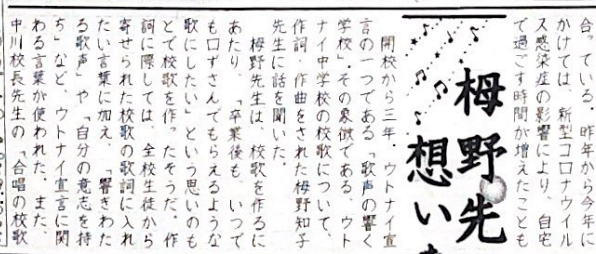 合っている。昨年から今年に
かけては、新型コロナウイル
ス感染症の影響により、自宅
で過ごす時間が増えたことも
栂野先
想い
開校から三年。ウトナイ宣
言の一つである「歌声の響く
学校」。その象徴である、ウト
ナイ中学校の校歌について、
作詞・作曲をされた栂野知子
先生に話を聞いた。
栂野先生は、校歌を作るに
あたり、「卒業後も、いつで
も口ずさんでもらえるような
歌にしたい」という思いのも
とで校歌を作ったそうだ。作
詞に際しては、全校生徒から
寄せられた校歌の歌詞に入れ
たい言葉に加え、「響きわた
る歌声」や「自分の意志を持
ち」など、ウトナイ宣言に関
わる言葉が使われた。また、
中川校長先生の「合唱の校歌